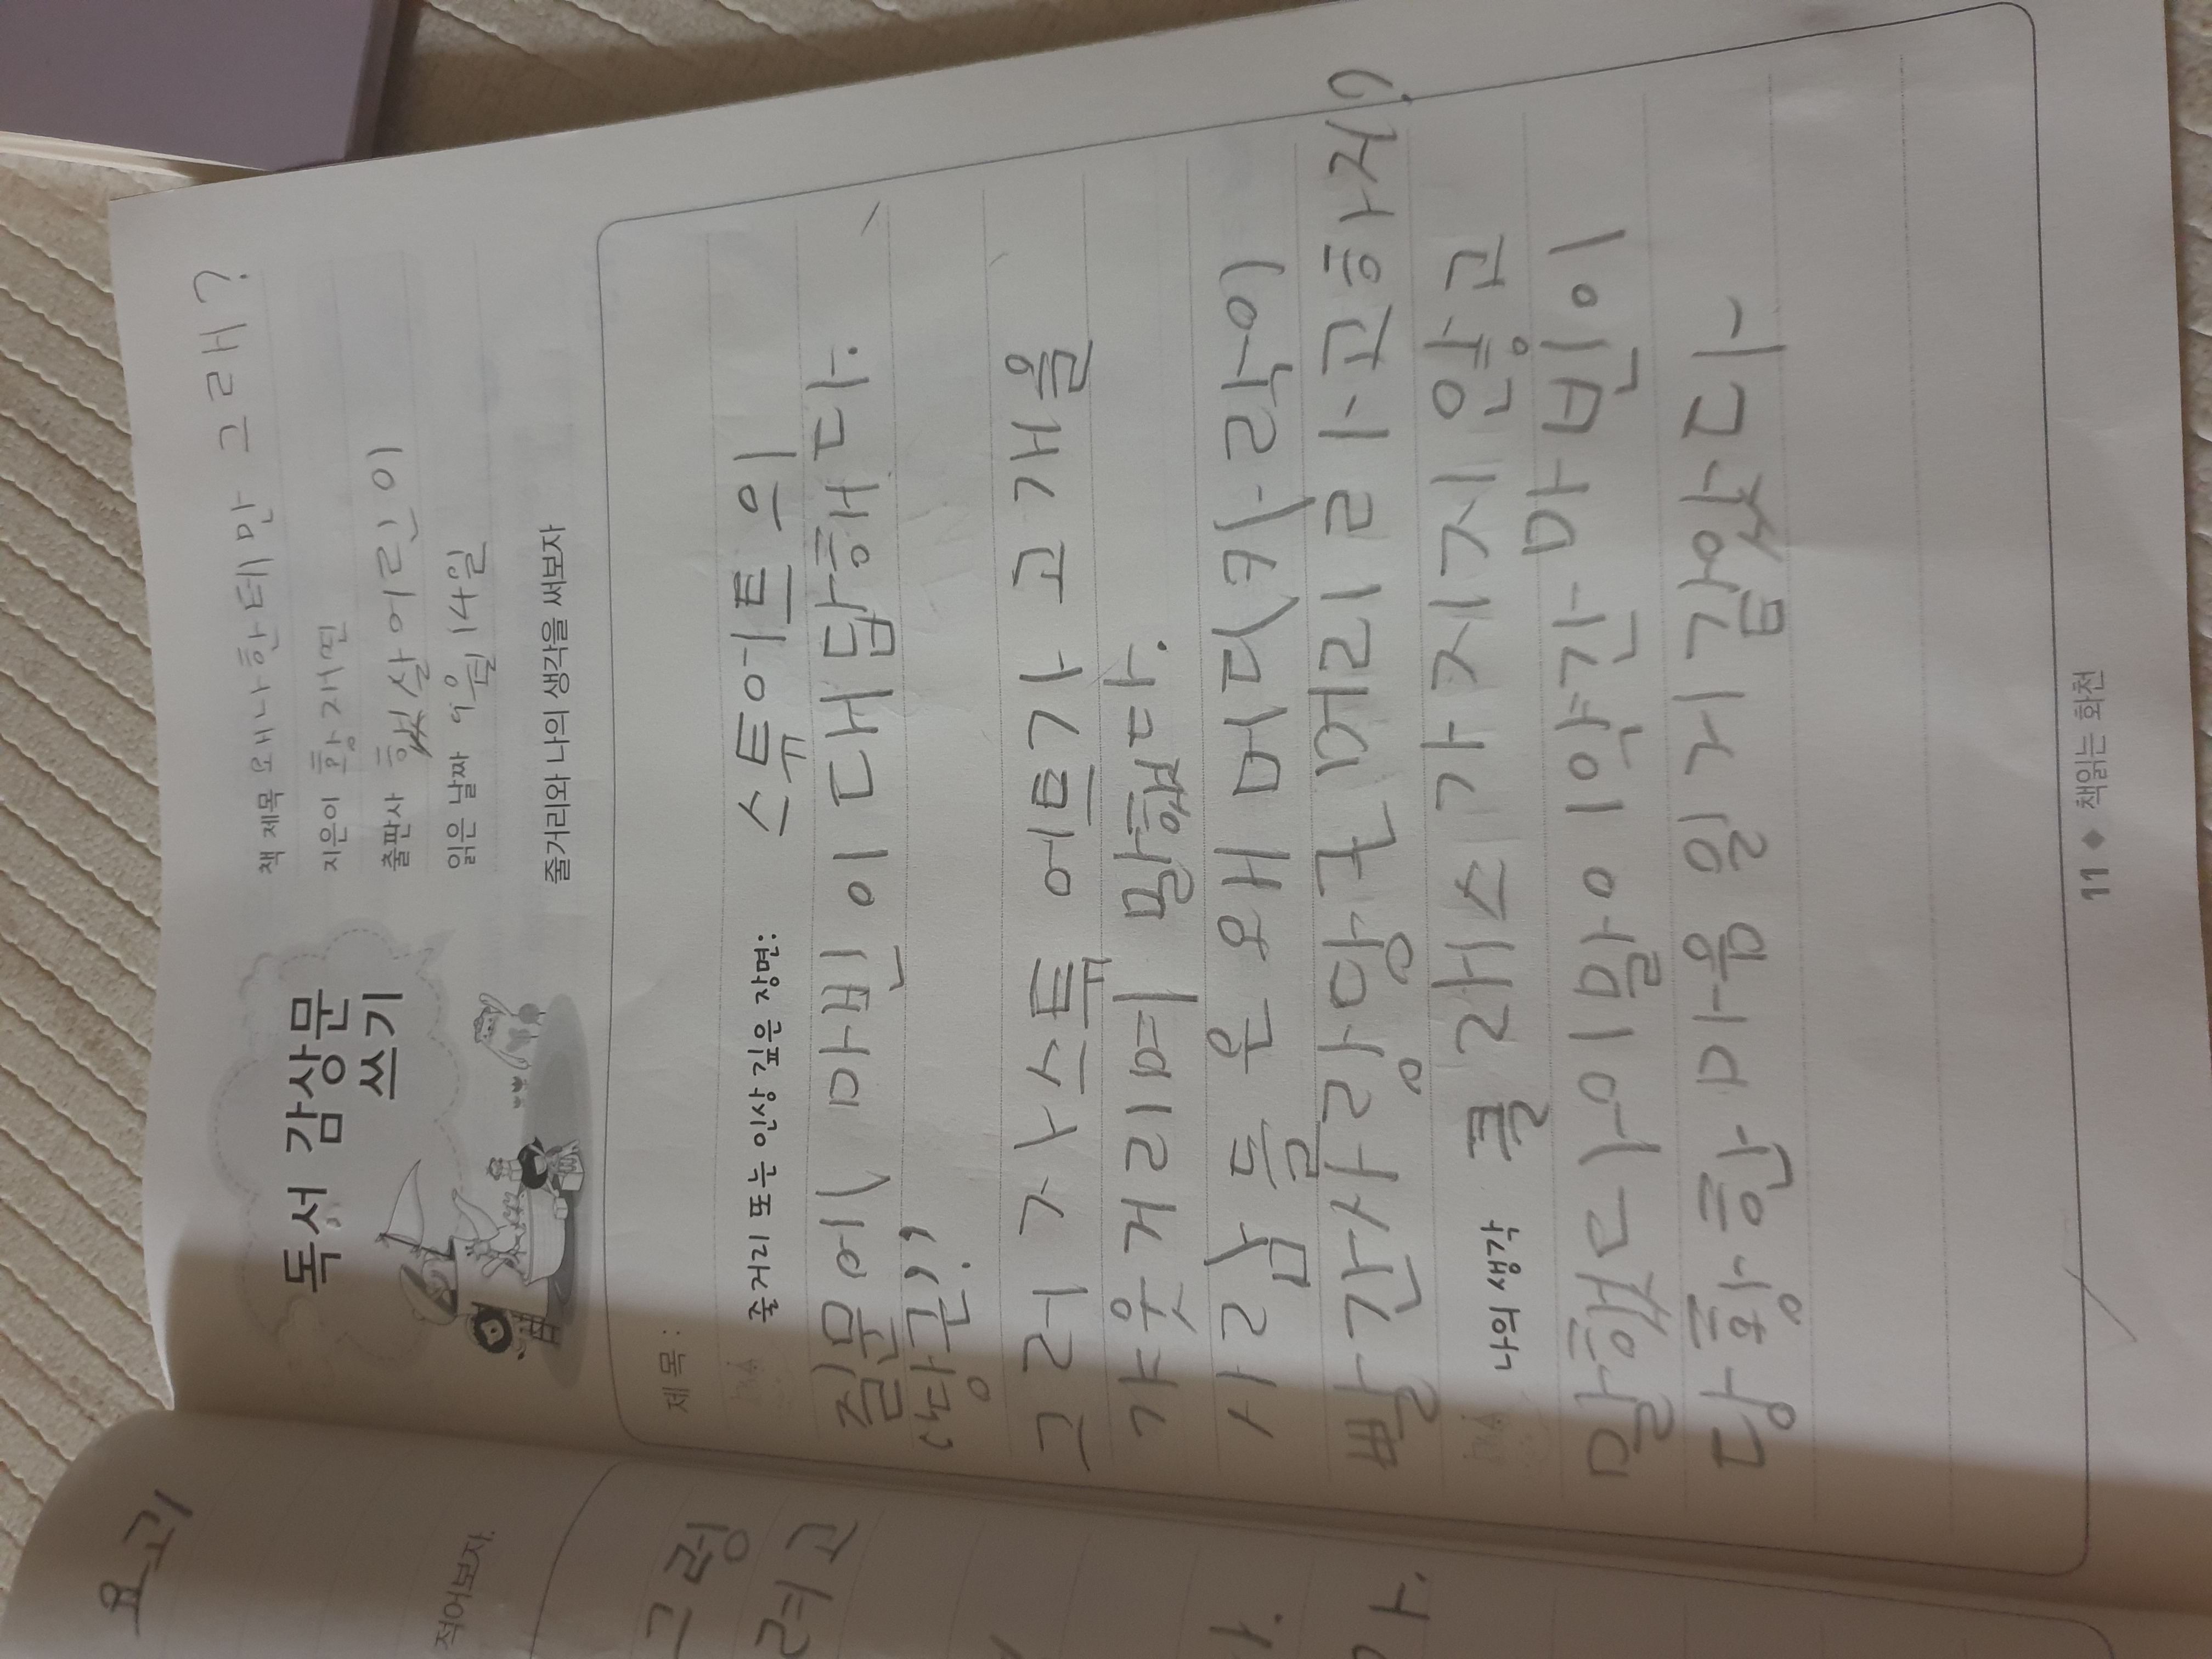 요괴
적어보자.
그렁
려고
독서 감상문
쓰기
책 제목 왜나한테만 그래?
지은이 황재연
출판사 했살어린이
읽은 날짜 9월 14일
줄거리와 나의 생각을 써보자
제목 :
줄거리 또는 인상 깊은 장면: 스튜어트 의
질문에 마빈이 대답해다.
"당근!"
그러자스튜어트가 고개을
갸웃거리며 말했다.
사람들은왜 머디카락이
빨간사랑당근머리라고하지?
나의 생각 클래스가지지 않고
말했다이말이약간 마빈이
당황한 마음일거 같았다
11 ◆ 책읽는 화천